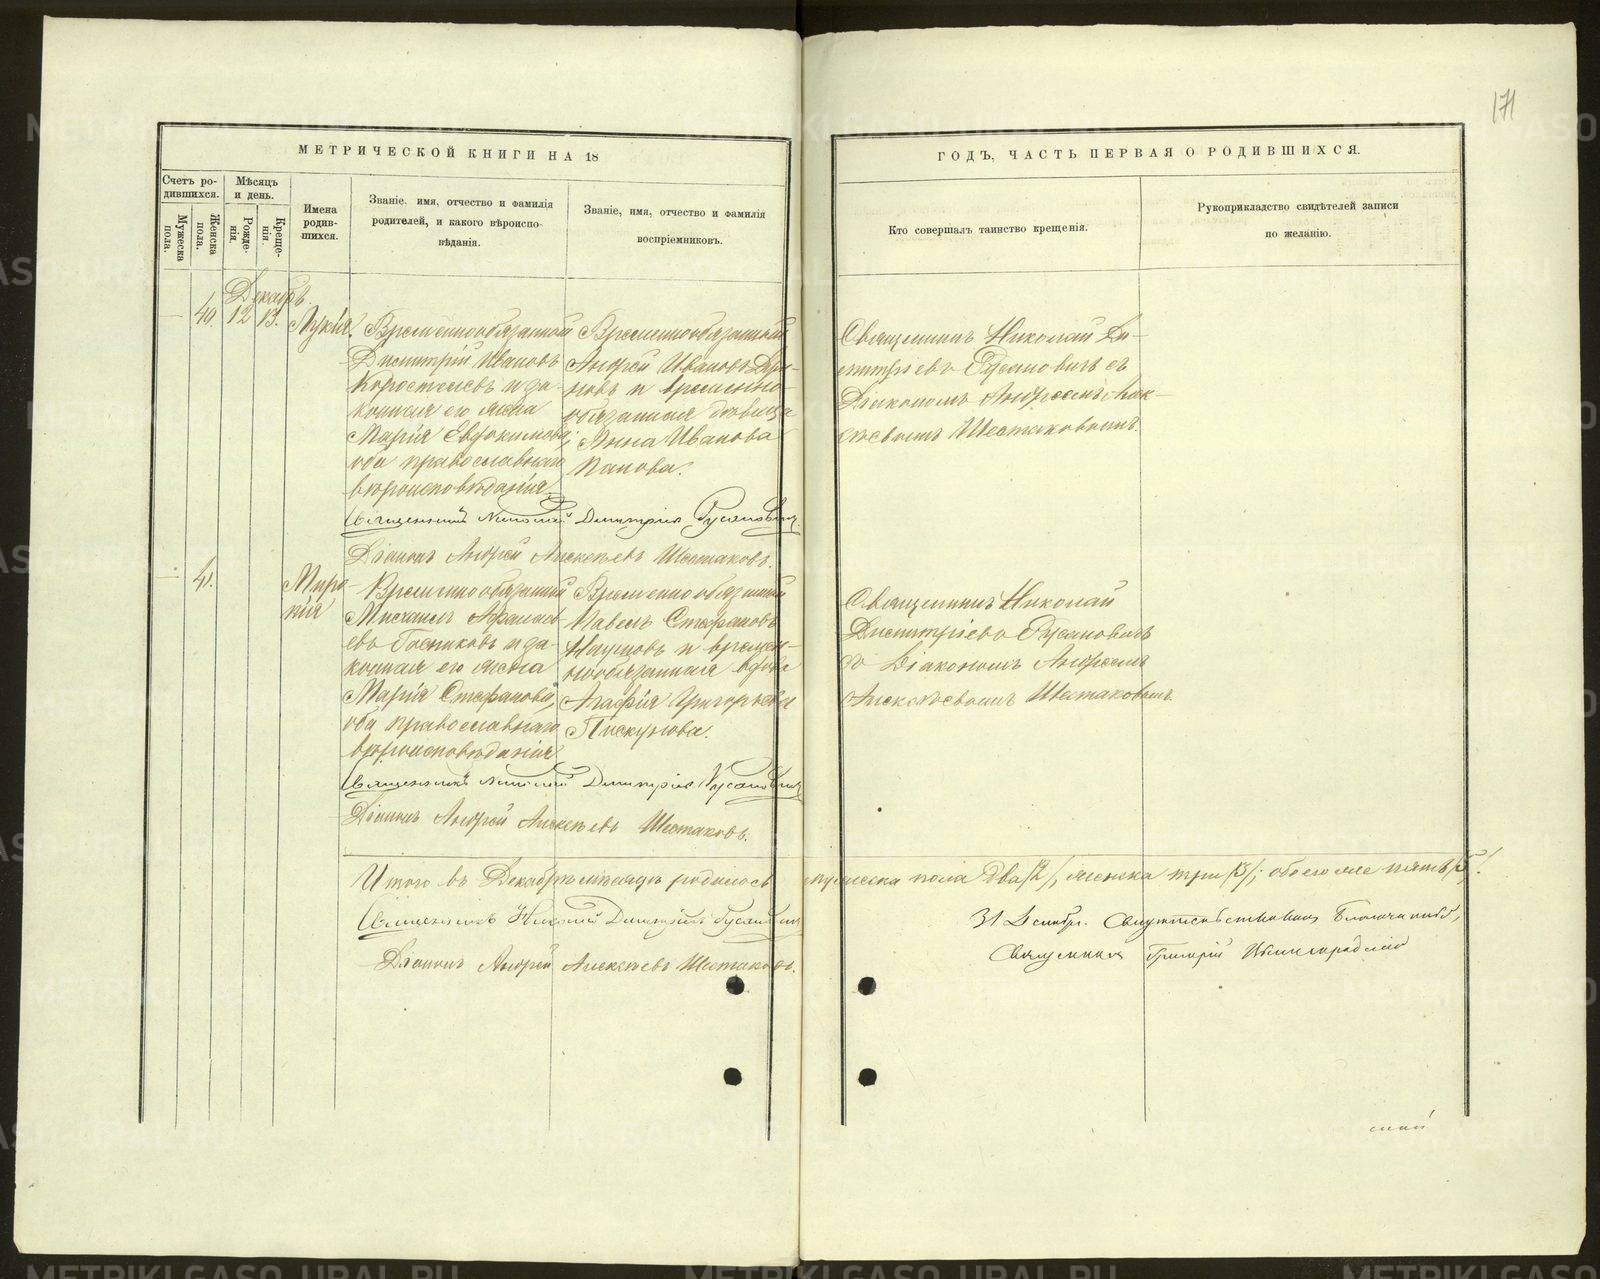 171
МЕТРИЧЕСКОЙ КНИГИ НА 18
ГОДЪ, ЧАСТЬ ПЕРВАЯ О РОДИВШИХСЯ.
Счетъ ро-
дившихся.
Мужеска
пола.
Женска
пола.
Мѣсяцъ
и день.
Рожде-
нія.
Креще-
нія.
Имена
родив-
шихся.
Званіе, имя, отчество и фамилія
родителей, и какого вѣроиспо-
вѣданія.
Званіе, имя, отчество и фамилія
воспріемниковъ.
Кто совершалъ таинство крещенія.
Рукоприкладство свидѣтелей записи
по желанію.
Декабрь.
— 40. 12 13. Лукія.
Временнообязанной
Димитрій Ивановъ
Коростелевъ и за-
конная его жена
Марія Евфокимова;
оба православнаго
вѣроисповѣданія.
Временнообязанный
Андрей Ивановъ
и временно-
обязанная дѣвица
Анна Иванова
Попова.
Священникъ Николай Ди-
митріевъ Русановичъ съ
Діакономъ Андреемъ Алек-
сѣевымъ Шестаковымъ.
Священникъ Николай Димитріевъ Русановичъ.
Діаконъ Андрей Алексѣевъ Шестаковъ.
— 41.
Миро-
пія
Временнообязанный
Михаилъ Афанась-
евъ и за-
конная его жена
Марія Стефанова,
оба православнаго
вѣроисповѣданія.
Временнообязанный
Павелъ Стефановъ
и времен-
нообязанная вдова
Агафія Григорьева
Пискунова.
Священникъ Николай
Димитріевъ Русановичъ
съ Діакономъ Андреемъ
Алексѣевымъ Шестаковымъ.
Священникъ Николай Димитріевъ Русановичъ
Діаконъ Андрей Алексѣевъ Шестаковъ.
Итого въ Декабрѣ мѣсяцѣ родилось мужеска пола два /2/, женска три /3/; обоего же пять /5/.
Священникъ Николай Димитріевъ Русановичъ
Діаконъ Андрей Алексѣевъ Шестаковъ.
31 Декабр. Свидѣтельствовалъ Благочинный,
Священникъ Григорій